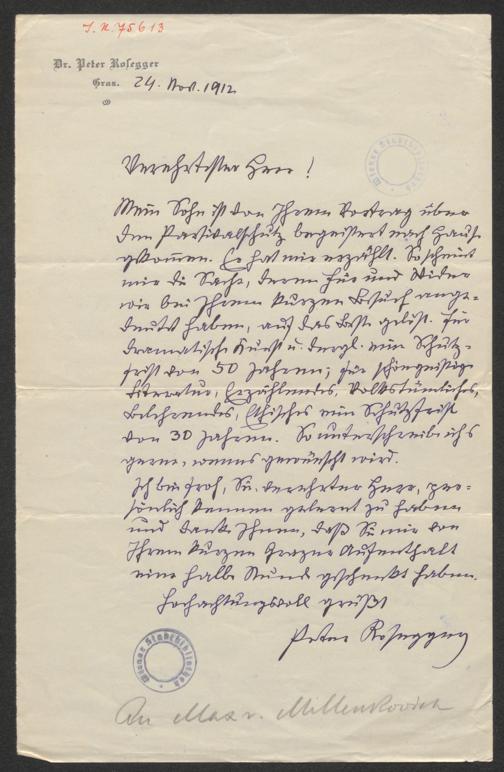 I. N. 75613
Dr. Peter Rosegger
Graz. 24. Nov. 1912
Verehrtester Herr!
Wiener Stadtbibliothek
Mein Sohn ist von Ihrem Vortrag über
den Parsivalschutz begeistert nach Hause
gekommen. Er hat mir erzählt. So scheint
mir die Sache, deren Für und Wider
wir bei Ihrem kurzen Besuch ange-
deutet haben, auf das Beste gelöst. Für
dramatische Kunst u. dergl. eine Schutz-
frist von 50 Jahren; für schöngeistige
Literatur, Erzählendes, Volkstümliches,
Belehrendes, Ethisches eine Schutzfrist
von 30 Jahren. So unterschreibe ichs
gerne, wenns gewünscht wird.
Ich bin froh, Sie, verehrter Herr, per-
sönlich kennen gelernt zu haben
und danke Ihnen, daß Sie mir von
Ihrem kurzen Grazer Aufenthalt
eine halbe Stunde geschenkt haben.
Hochachtungsvoll grüßt
Peter Rosegger
Wiener Stadtbibliothek
An Max v. Millenkovich